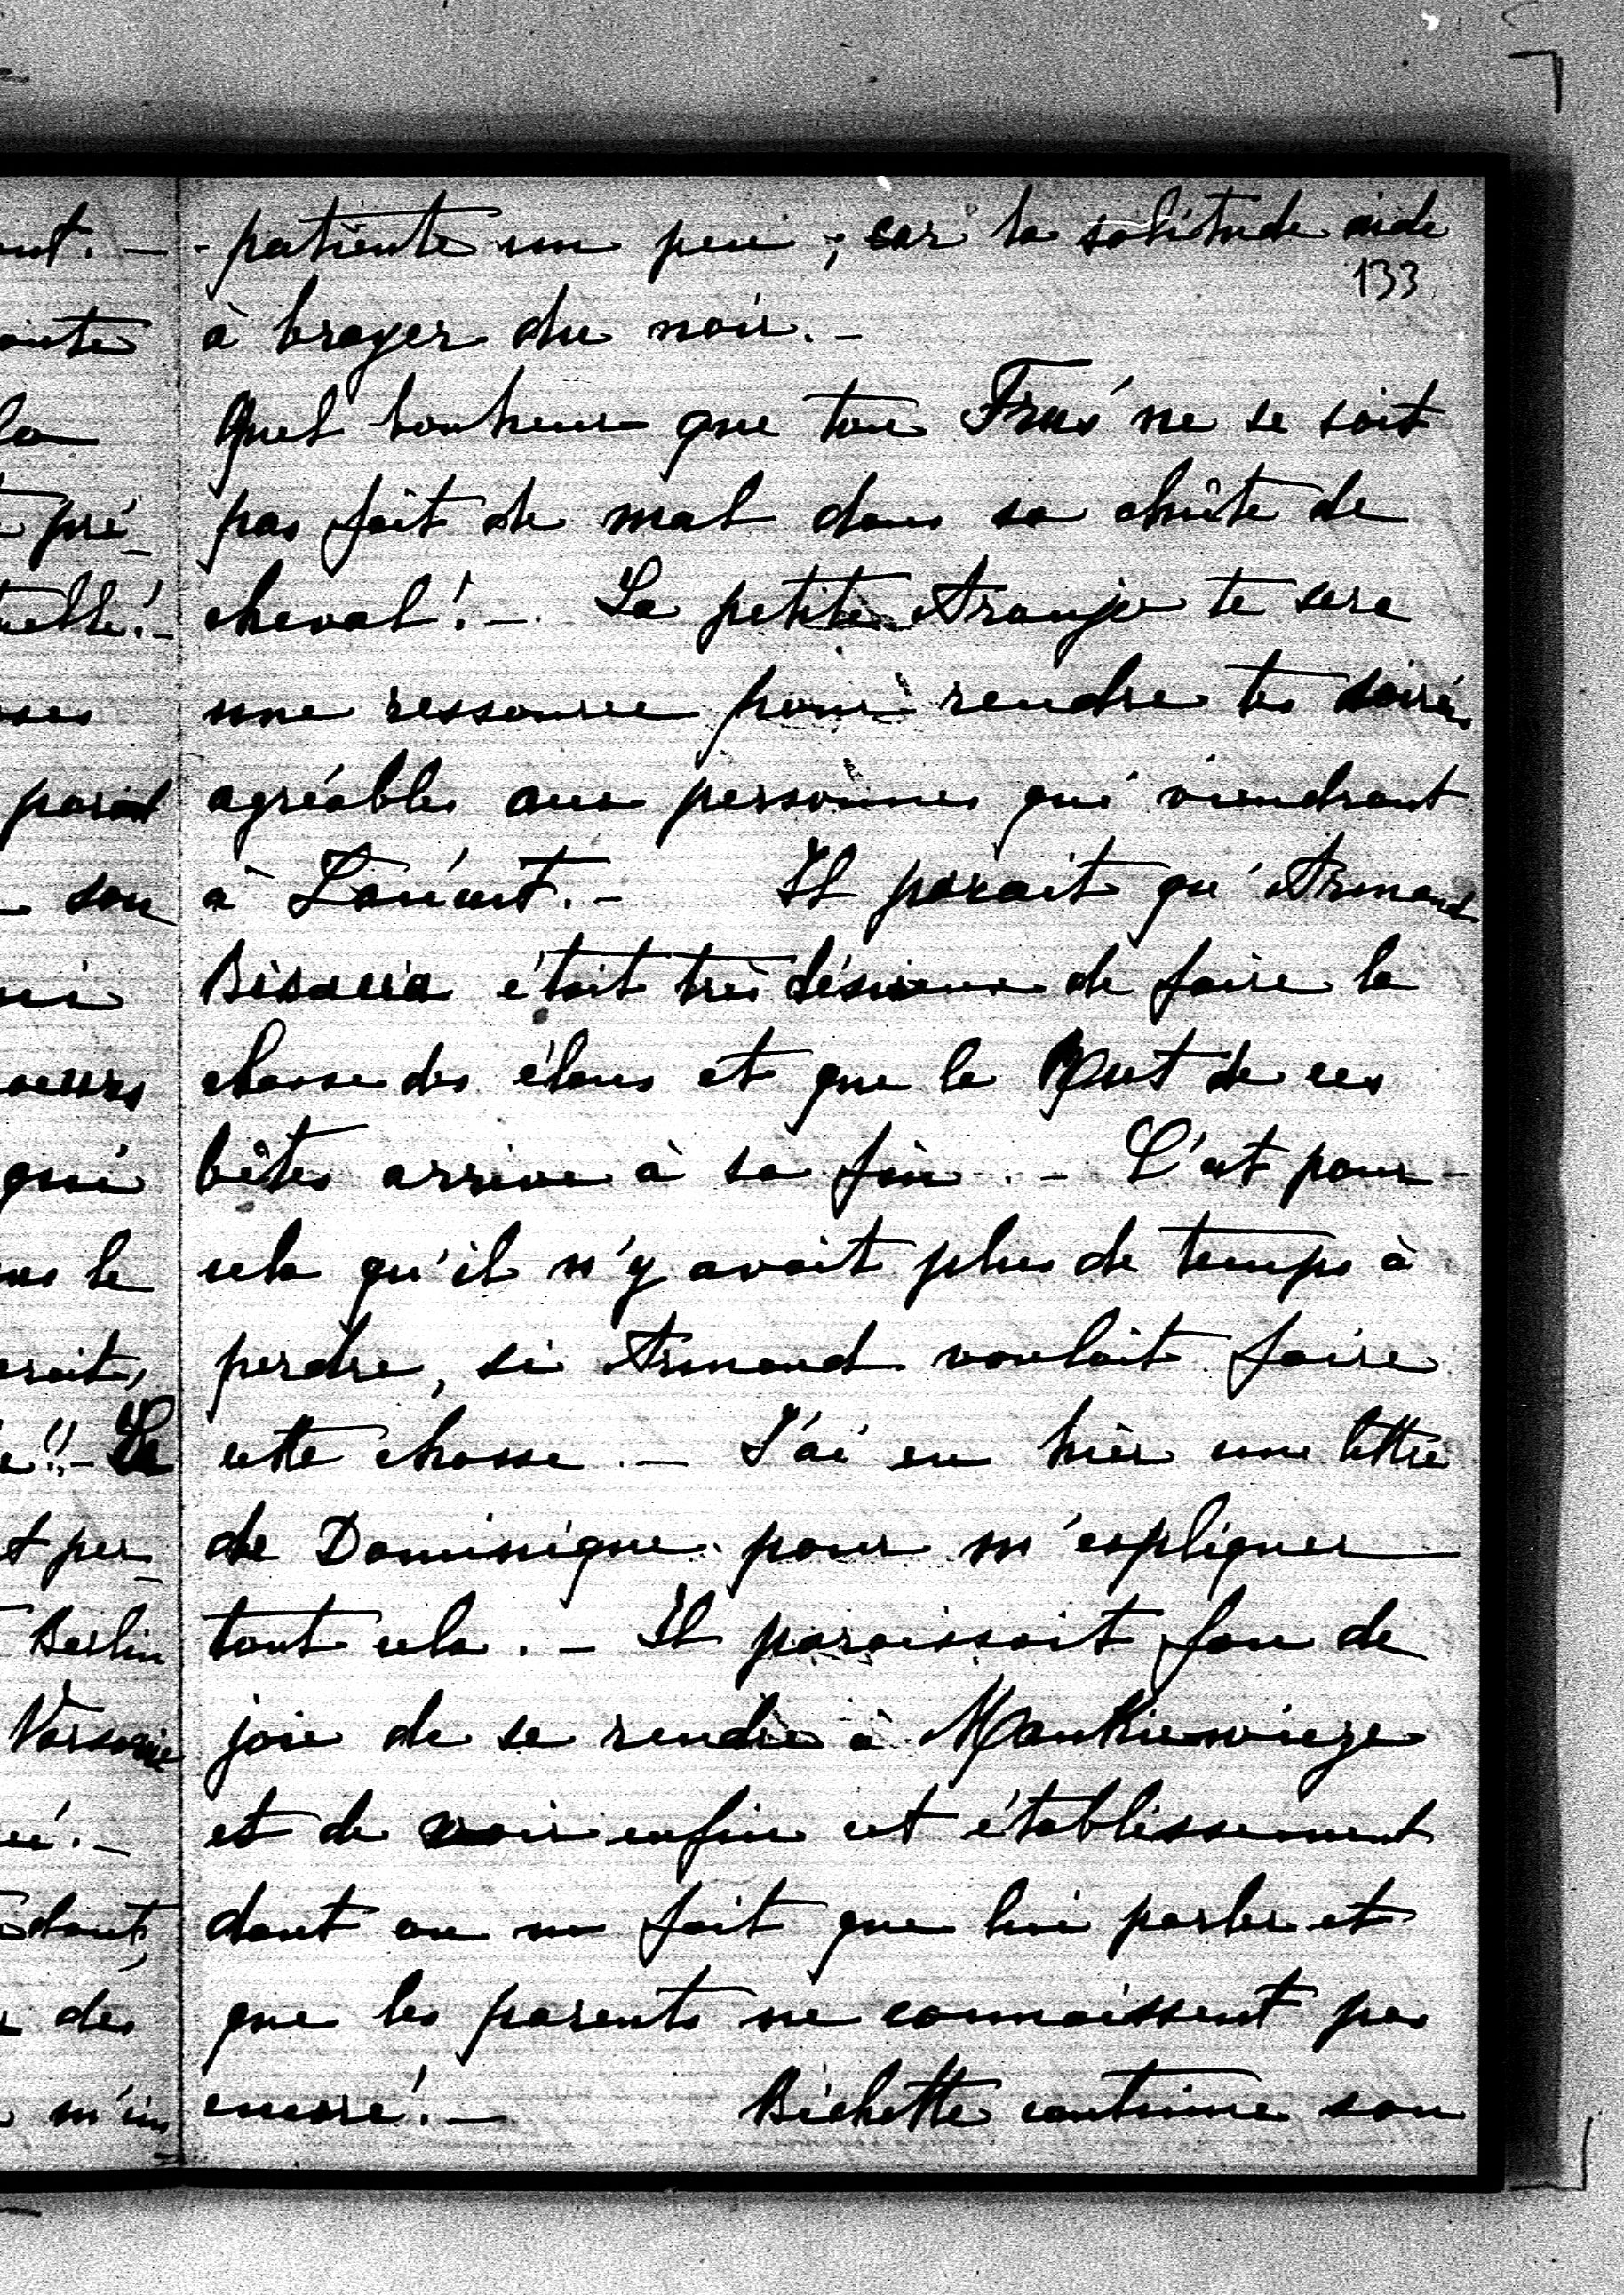 patiente un peu ; car la solitude aide
133
à broyer du noir. -
Quel bonheur que ton ne se soit
pas fait de mal dans sa chûte de
cheval ! - La petite Araujo te sera
une ressource pour rendre tes soirées
agréables aux personnes qui viendront
à Lancut. - Il parait qu'Armand
Bisaccia était très désireux de faire la
chasse des élans et que le Rut de ces
bêtes arrive à sa fin. - C'est pour
cela qu'il n'y avait plus de temps à
perdre, si Armand voulait faire
cette chasse. - J'ai eu hier une lettre
de Dominique pour m'expliquer
tout cela. - Il paraissait fou de
joie de se rendre à Mankiewicze
et de voir enfin cet établissement
dont on ne fait que lui parler et
que les parents ne connaissent pas
encore ! - Bichette continue son